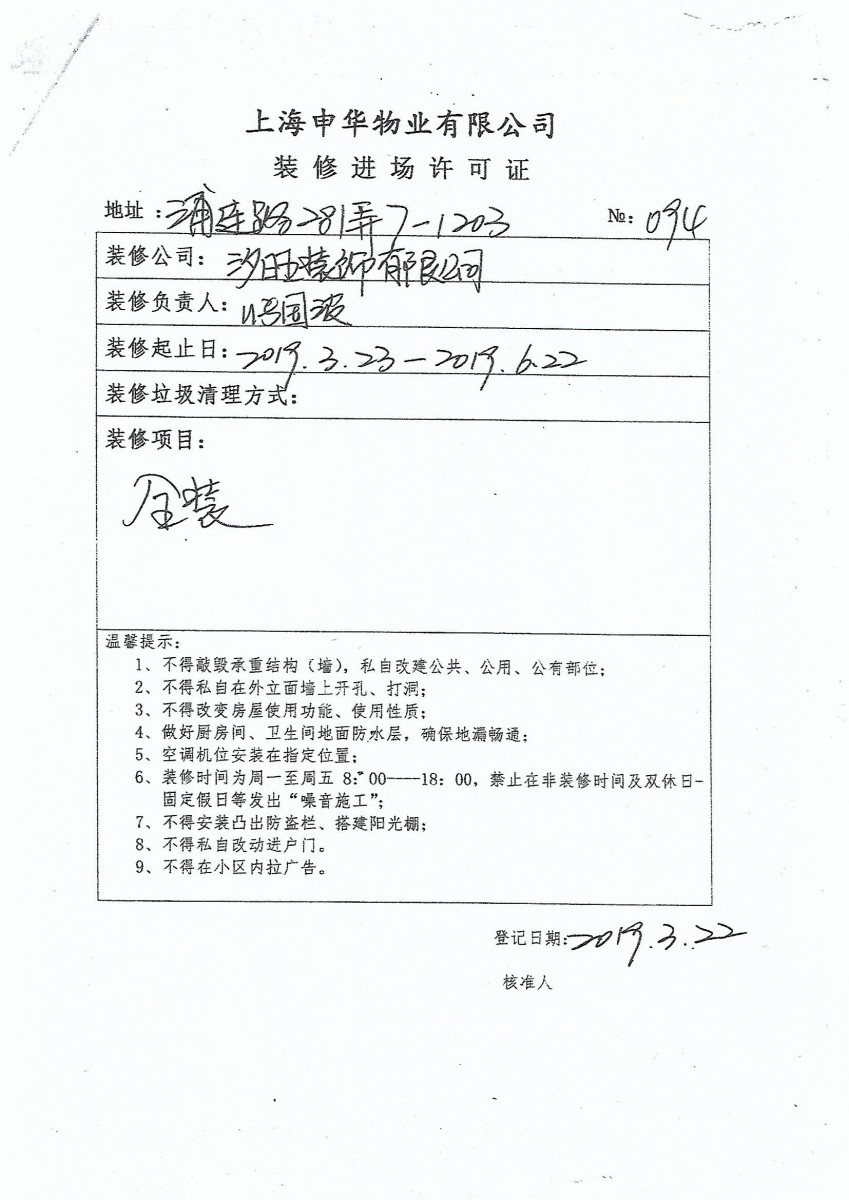 上海申华物业有限公司
装修进场许可证
地址：浦连路281弄7-1203 №：094
装修公司：汐旺装饰有限公司
装修负责人：国波
装修起止日：2019.3.23-2019.6.22
装修垃圾清理方式：
装修项目：
全装
温馨提示：
1、不得敲毁承重结构（墙），私自改建公共、公用、公有部位；
2、不得私自在外立面墙上开孔、打洞；
3、不得改变房屋使用功能、使用性质；
4、做好厨房间、卫生间地面防水层，确保地漏畅通；
5、空调机位安装在指定位置；
6、装修时间为周一至周五 8：00----18：00，禁止在非装修时间及双休日-
固定假日等发出“噪音施工”；
7、不得安装凸出防盗栏、搭建阳光棚；
8、不得私自改动进户门。
9、不得在小区内拉广告。
登记日期：2019.3.22
核准人